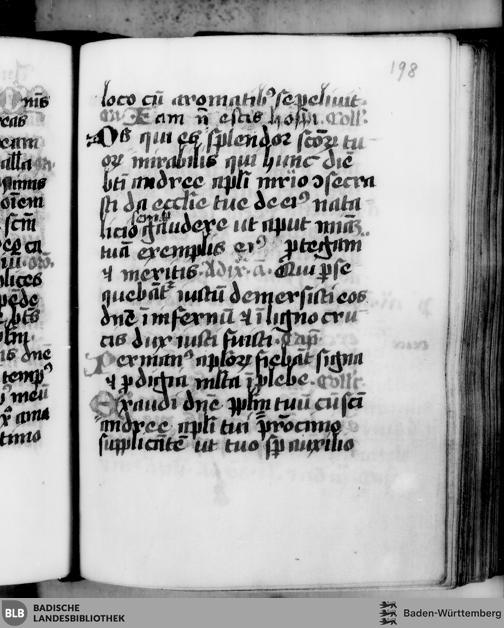 198
loco cū aromatibꝰ sepeliuit.
an. Iam nō estis hospi. Coll.
DS qui es splendor scōrꝫ tu
orꝫ mirabilis qui hunc diē
bti andree apli mrio ɔsecra
sti da ecclie tue de eiꝰ nata
licio semꝑ gaudere ut aput miāꝫ
tuā exemplis eiꝰ ꝓtegam
⁊ meritis. Qui ꝑse
quebāt iustū demersisti eos
dn̄e ī infernū ⁊ ī ligno cru
cis dux iusti fuisti. Cap
Per manꝰ aplorꝫ fiebāt signa
⁊ ꝓdigia mlta ī plebe. Coll
Exaudi dn̄e pplm tuū cū sci
andree apli tui prōcinio
supplicātē ut tuo sp̄ auxilio
nis
eam
alla
oīem
scm̄
ee ca
plices
pēde
bts
dn̄e
tempꝰ
meū
ama
timo
BLB BADISCHE
LANDESBIBLIOTHEK
Baden-Württemberg